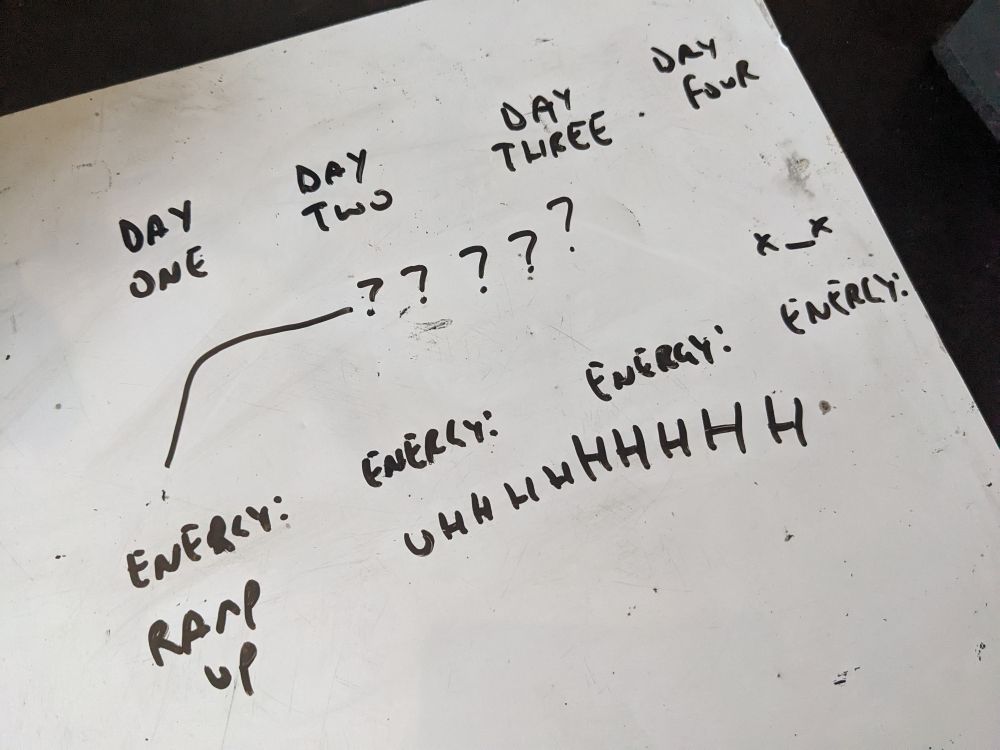 DAY ONE
DAY TWO
DAY THREE
DAY FOUR
? ? ? ? ?
x_x
ENERGY:
RAMP UP
ENERGY:
ENERGY:
ENERGY:
UHHHHHHHHHH